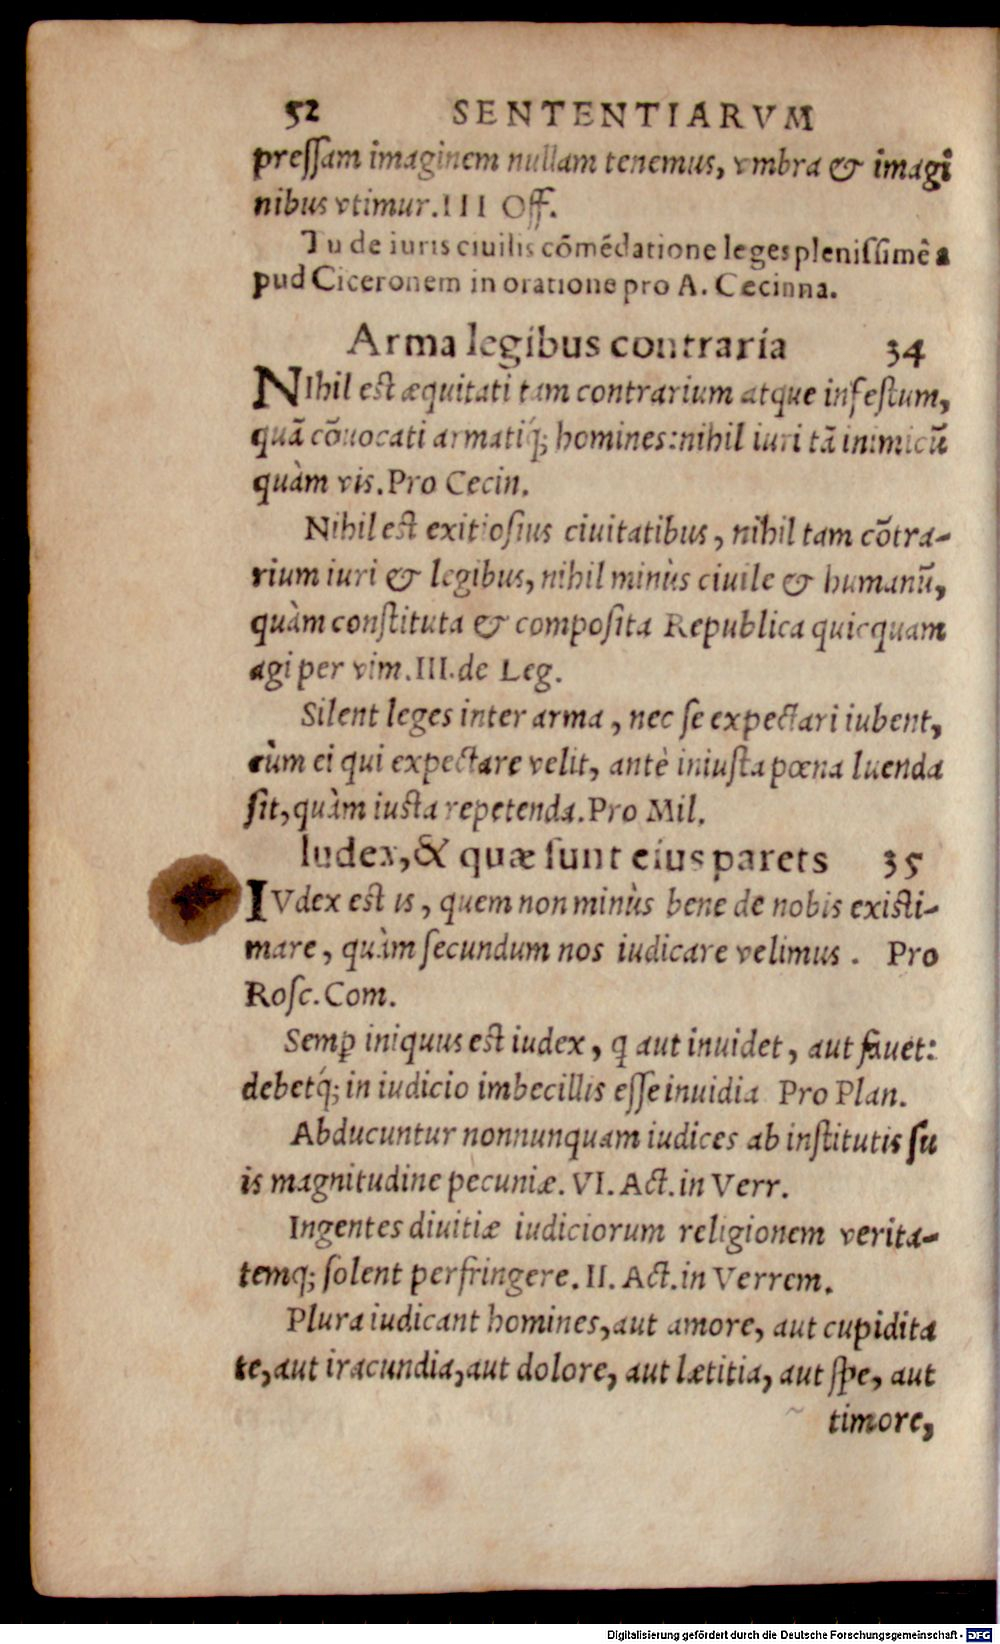 52 SENTENTIARVM
preſſam imaginem nullam tenemus, vmbra & imagi
nibus vtimur. III Off.
Tu de iuris ciuilis cōmēdatione leges pleniſſimê a
pud Ciceronem in oratione pro A. Cecinna.
Arma legibus contraria 34
NIhil est æquitati tam contrarium atque infeſtum,
quā cōuocati armatiq́; homines: nihil iuri tā inimicū
quàm vis. Pro Cecin.
Nihil est exitioſius ciuitatibus, nihil tam cōtra-
rium iuri & legibus, nihil minùs ciuile & humanū,
quàm conſtituta & compoſita Republica quicquam
agi per vim. III. de Leg.
Silent leges inter arma, nec ſe expectari iubent,
cùm ei qui expectare velit, antè iniuſta pœna luenda
ſit, quàm iuſta repetenda. Pro Mil.
Iudex, & quæ ſunt eius parets 35
IVdex est is, quem non minùs bene de nobis exiſti-
mare, quàm ſecundum nos iudicare velimus. Pro
Roſc. Com.
Semꝑ iniquus est iudex, q aut inuidet, aut fauet:
debetq́; in iudicio imbecillis eſſe inuidia Pro Plan.
Abducuntur nonnunquam iudices ab inſtitutis ſu
is magnitudine pecuniæ. VI. Act. in Verr.
Ingentes diuitiæ iudiciorum religionem verita-
temq; ſolent perfringere. II. Act. in Verrem.
Plura iudicant homines, aut amore, aut cupidita
te, aut iracundia, aut dolore, aut lætitia, aut ſpe, aut
timore,
Digitalisierung gefördert durch die Deutsche Forschungsgemeinschaft - DFG